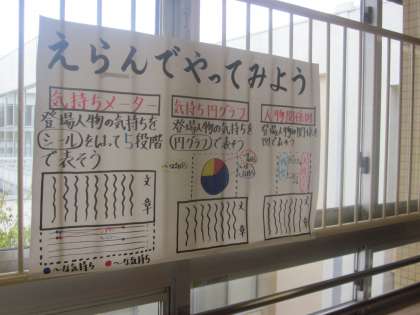 えらんでやってみよう
気持ちメーター
登場人物の気持ちを
シールをはって5段階
で表そう
文章
●〜な気持ち ●〜な気持ち
気持ち円グラフ
登場人物の気持ちを
円グラフで表そう
〜な気持ち
文章
人物関係図
登場人物の関係を
図で表そう
文章